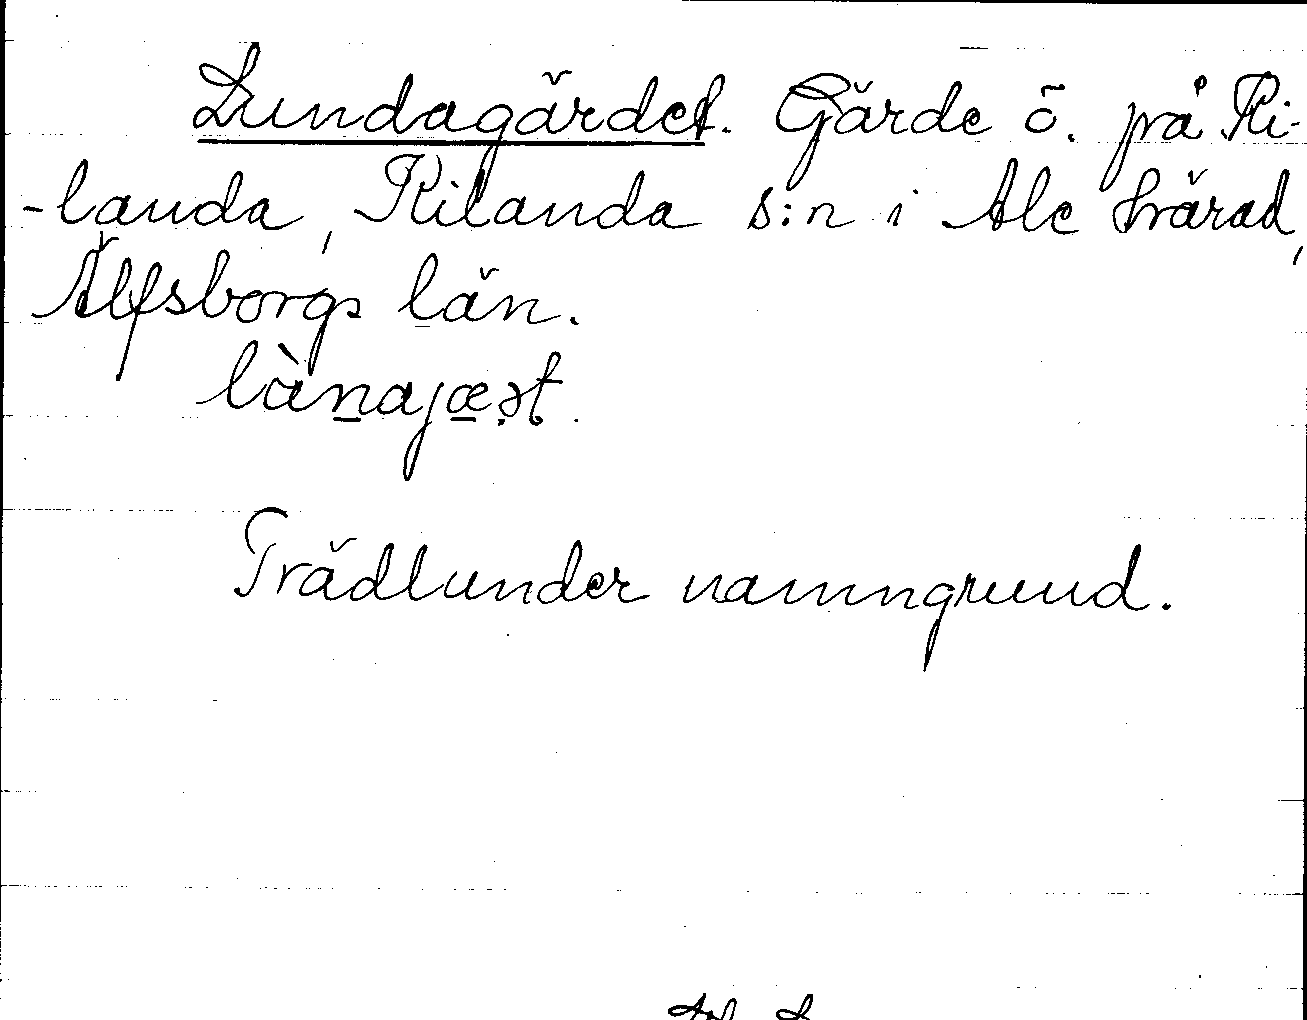 Lundagärdet. Gärde ö. på Ki-
-landa, Kilanda s:n i Ale härad,
Älfsborgs län.
lànajæṣt.
Trädlunder namngrund.